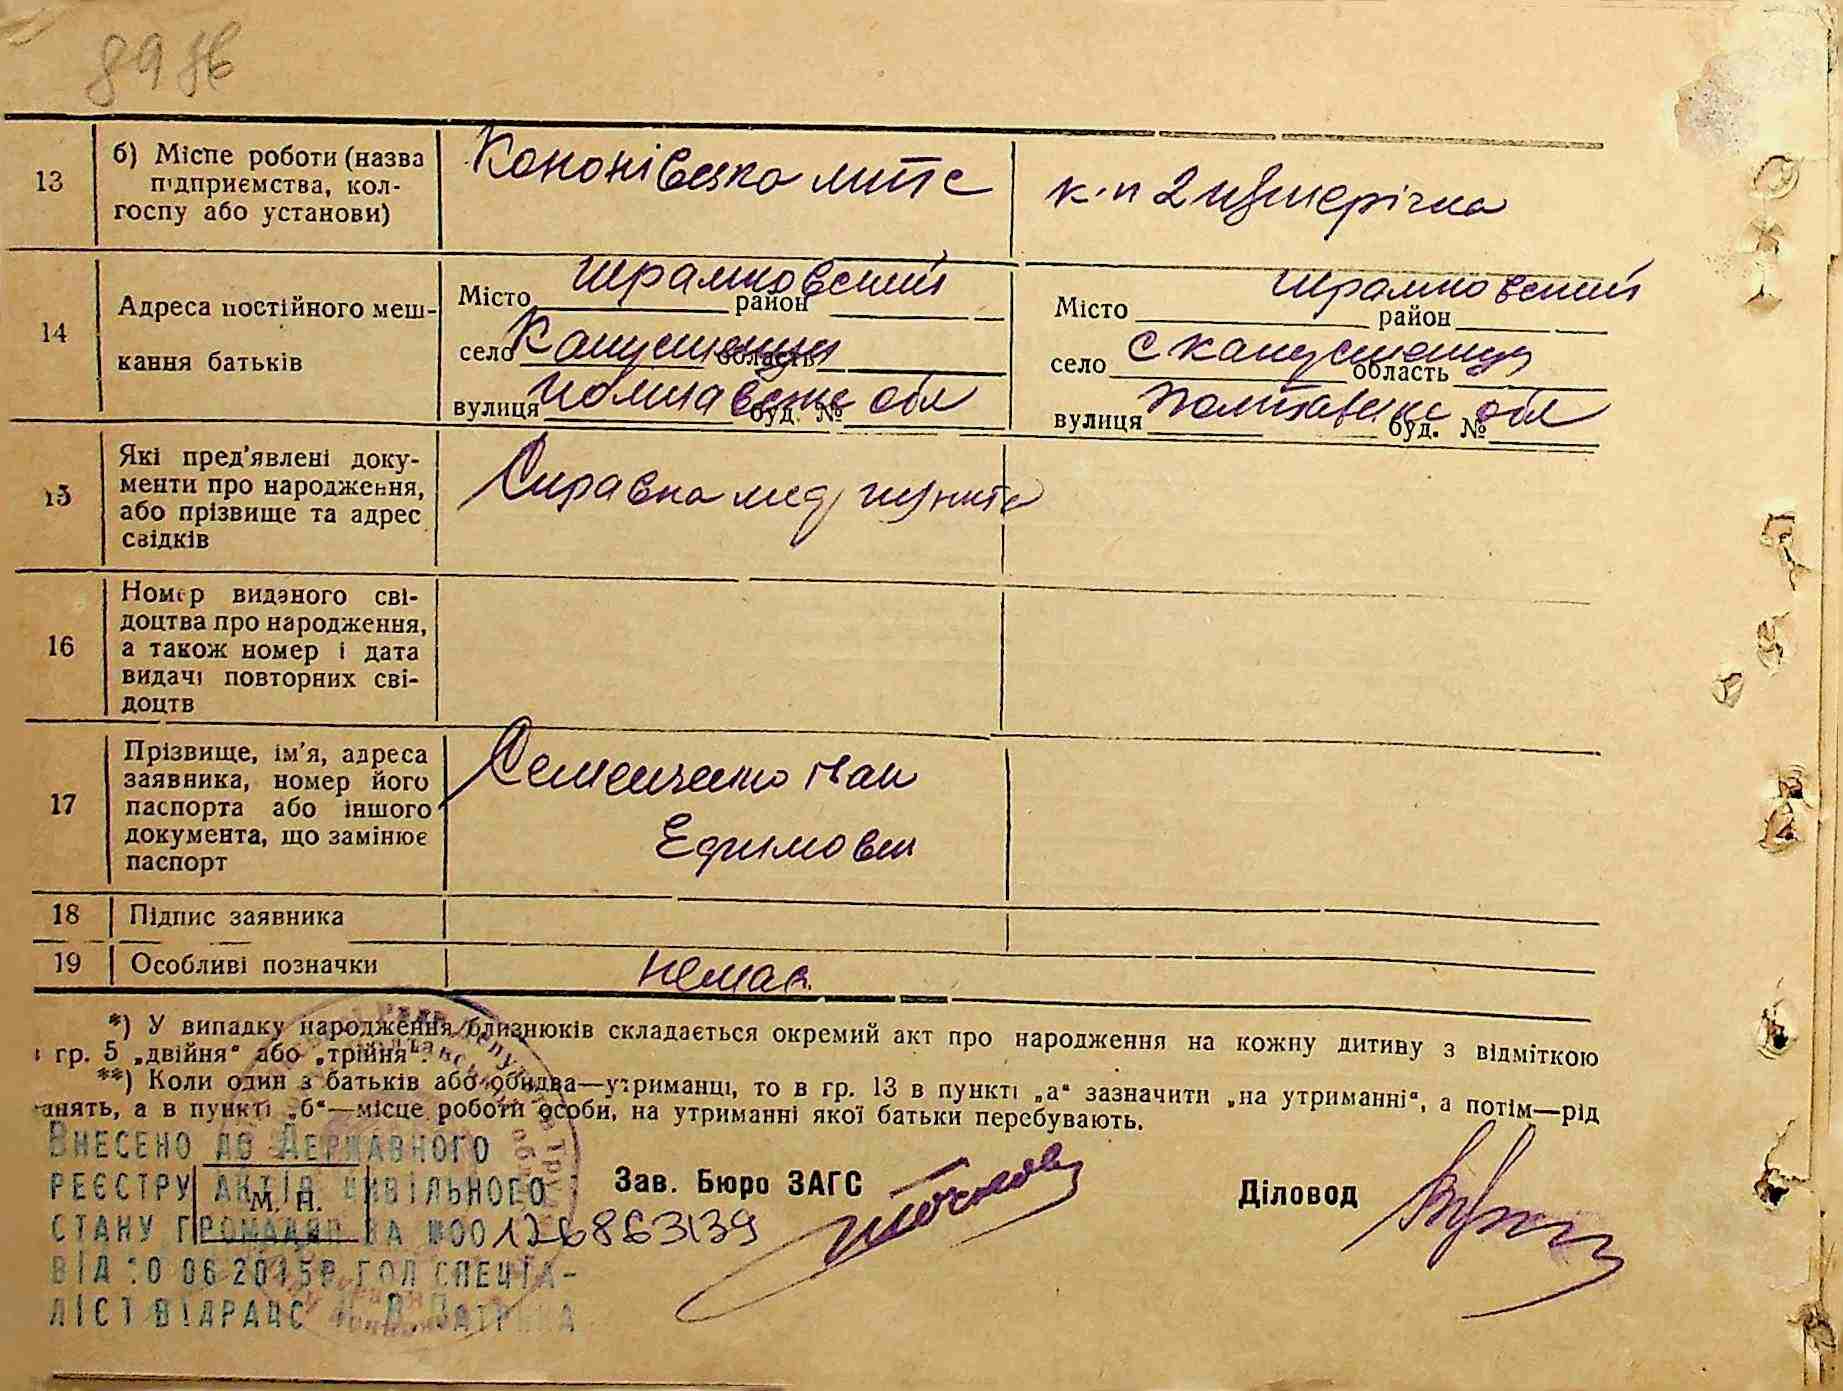 89 зв
13
б) Місце роботи (назва
підприємства, кол-
госпу або установи)
Кононівська мтс
к-п 2 пʼятирічка
14
Адреса постійного меш-
кання батьків
Місто Шрамковский район
село Капустинци область
вулиця Полтавське обл буд. №
Місто Шрамковский район
село с Капустинци область
вулиця Полтавське обл буд. №
15
Які пред'явлені доку-
менти про народження,
або прізвище та адрес
свідків
Справка мед пункта
16
Номер виданого сві-
доцтва про народження,
а також номер і дата
видачі повторних сві-
доцтв
17
Прізвище, ім'я, адреса
заявника, номер його
паспорта або іншого
документа, що замінює
паспорт
Семенченко Іван
Ефимович
18
Підпис заявника
19
Особливі позначки
немає
*) У випадку народження близнюків складається окремий акт про народження на кожну дитину з відміткою
в гр. 5 „двійня" або „трійня".
**) Коли один з батьків або обидва—утриманці, то в гр. 13 в пункті „а" зазначити „на утриманні", а потім—рід
занять, а в пункті „б"—місце роботи особи, на утриманні якої батьки перебувають.
Внесено до Державного
реєстру актів цивільного
стану громадян за №00126863139
від 10 06 2015р гол спеціа-
ліст відрацс
М. П.
Зав. Бюро ЗАГС
Діловод